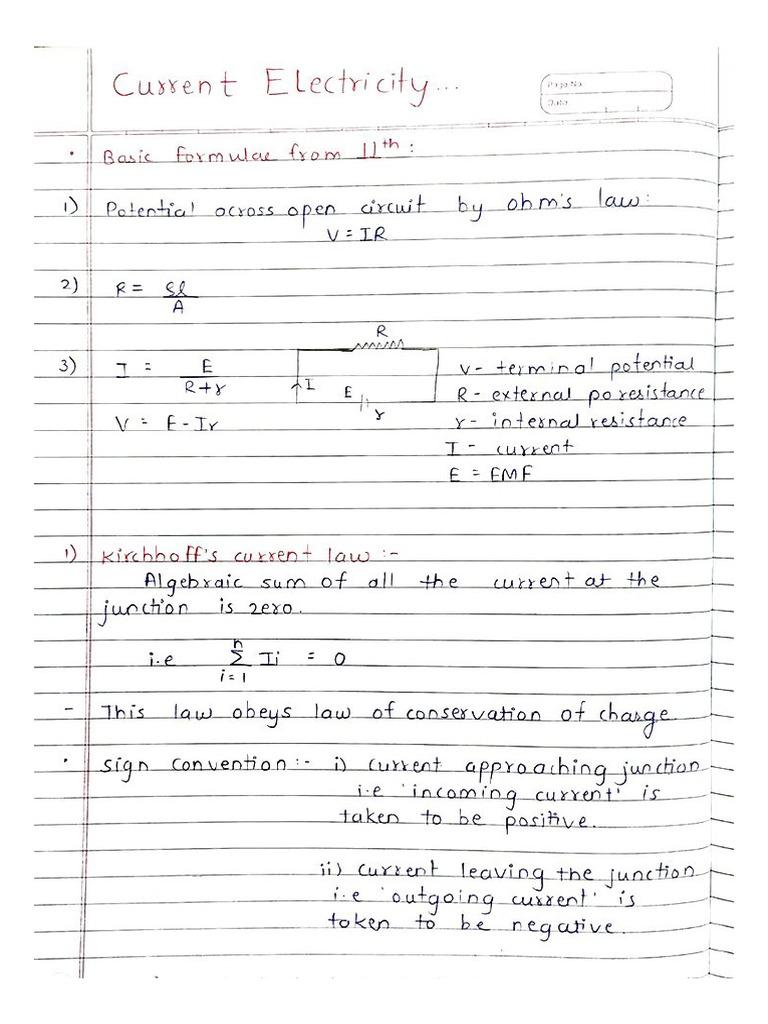 Current Electricity...
Page No.
Date
• Basic formulae from 11th :
1) Potential across open circuit by ohm's law:
V = IR
2) R = ρl / A
3) I = E / R+r
V = E - Ir
R
I
E
r
V - terminal potential
R - external po resistance
r - internal resistance
I - current
E = EMF
1) Kirchhoff's current law :-
Algebraic sum of all the current at the
junction is zero.
i.e n Σ i=1 Ii = 0
- This law obeys law of conservation of charge
• sign convention :- i) current approaching junction
i.e 'incoming current' is
taken to be positive.
ii) current leaving the junction
i.e 'outgoing current' is
taken to be negative.